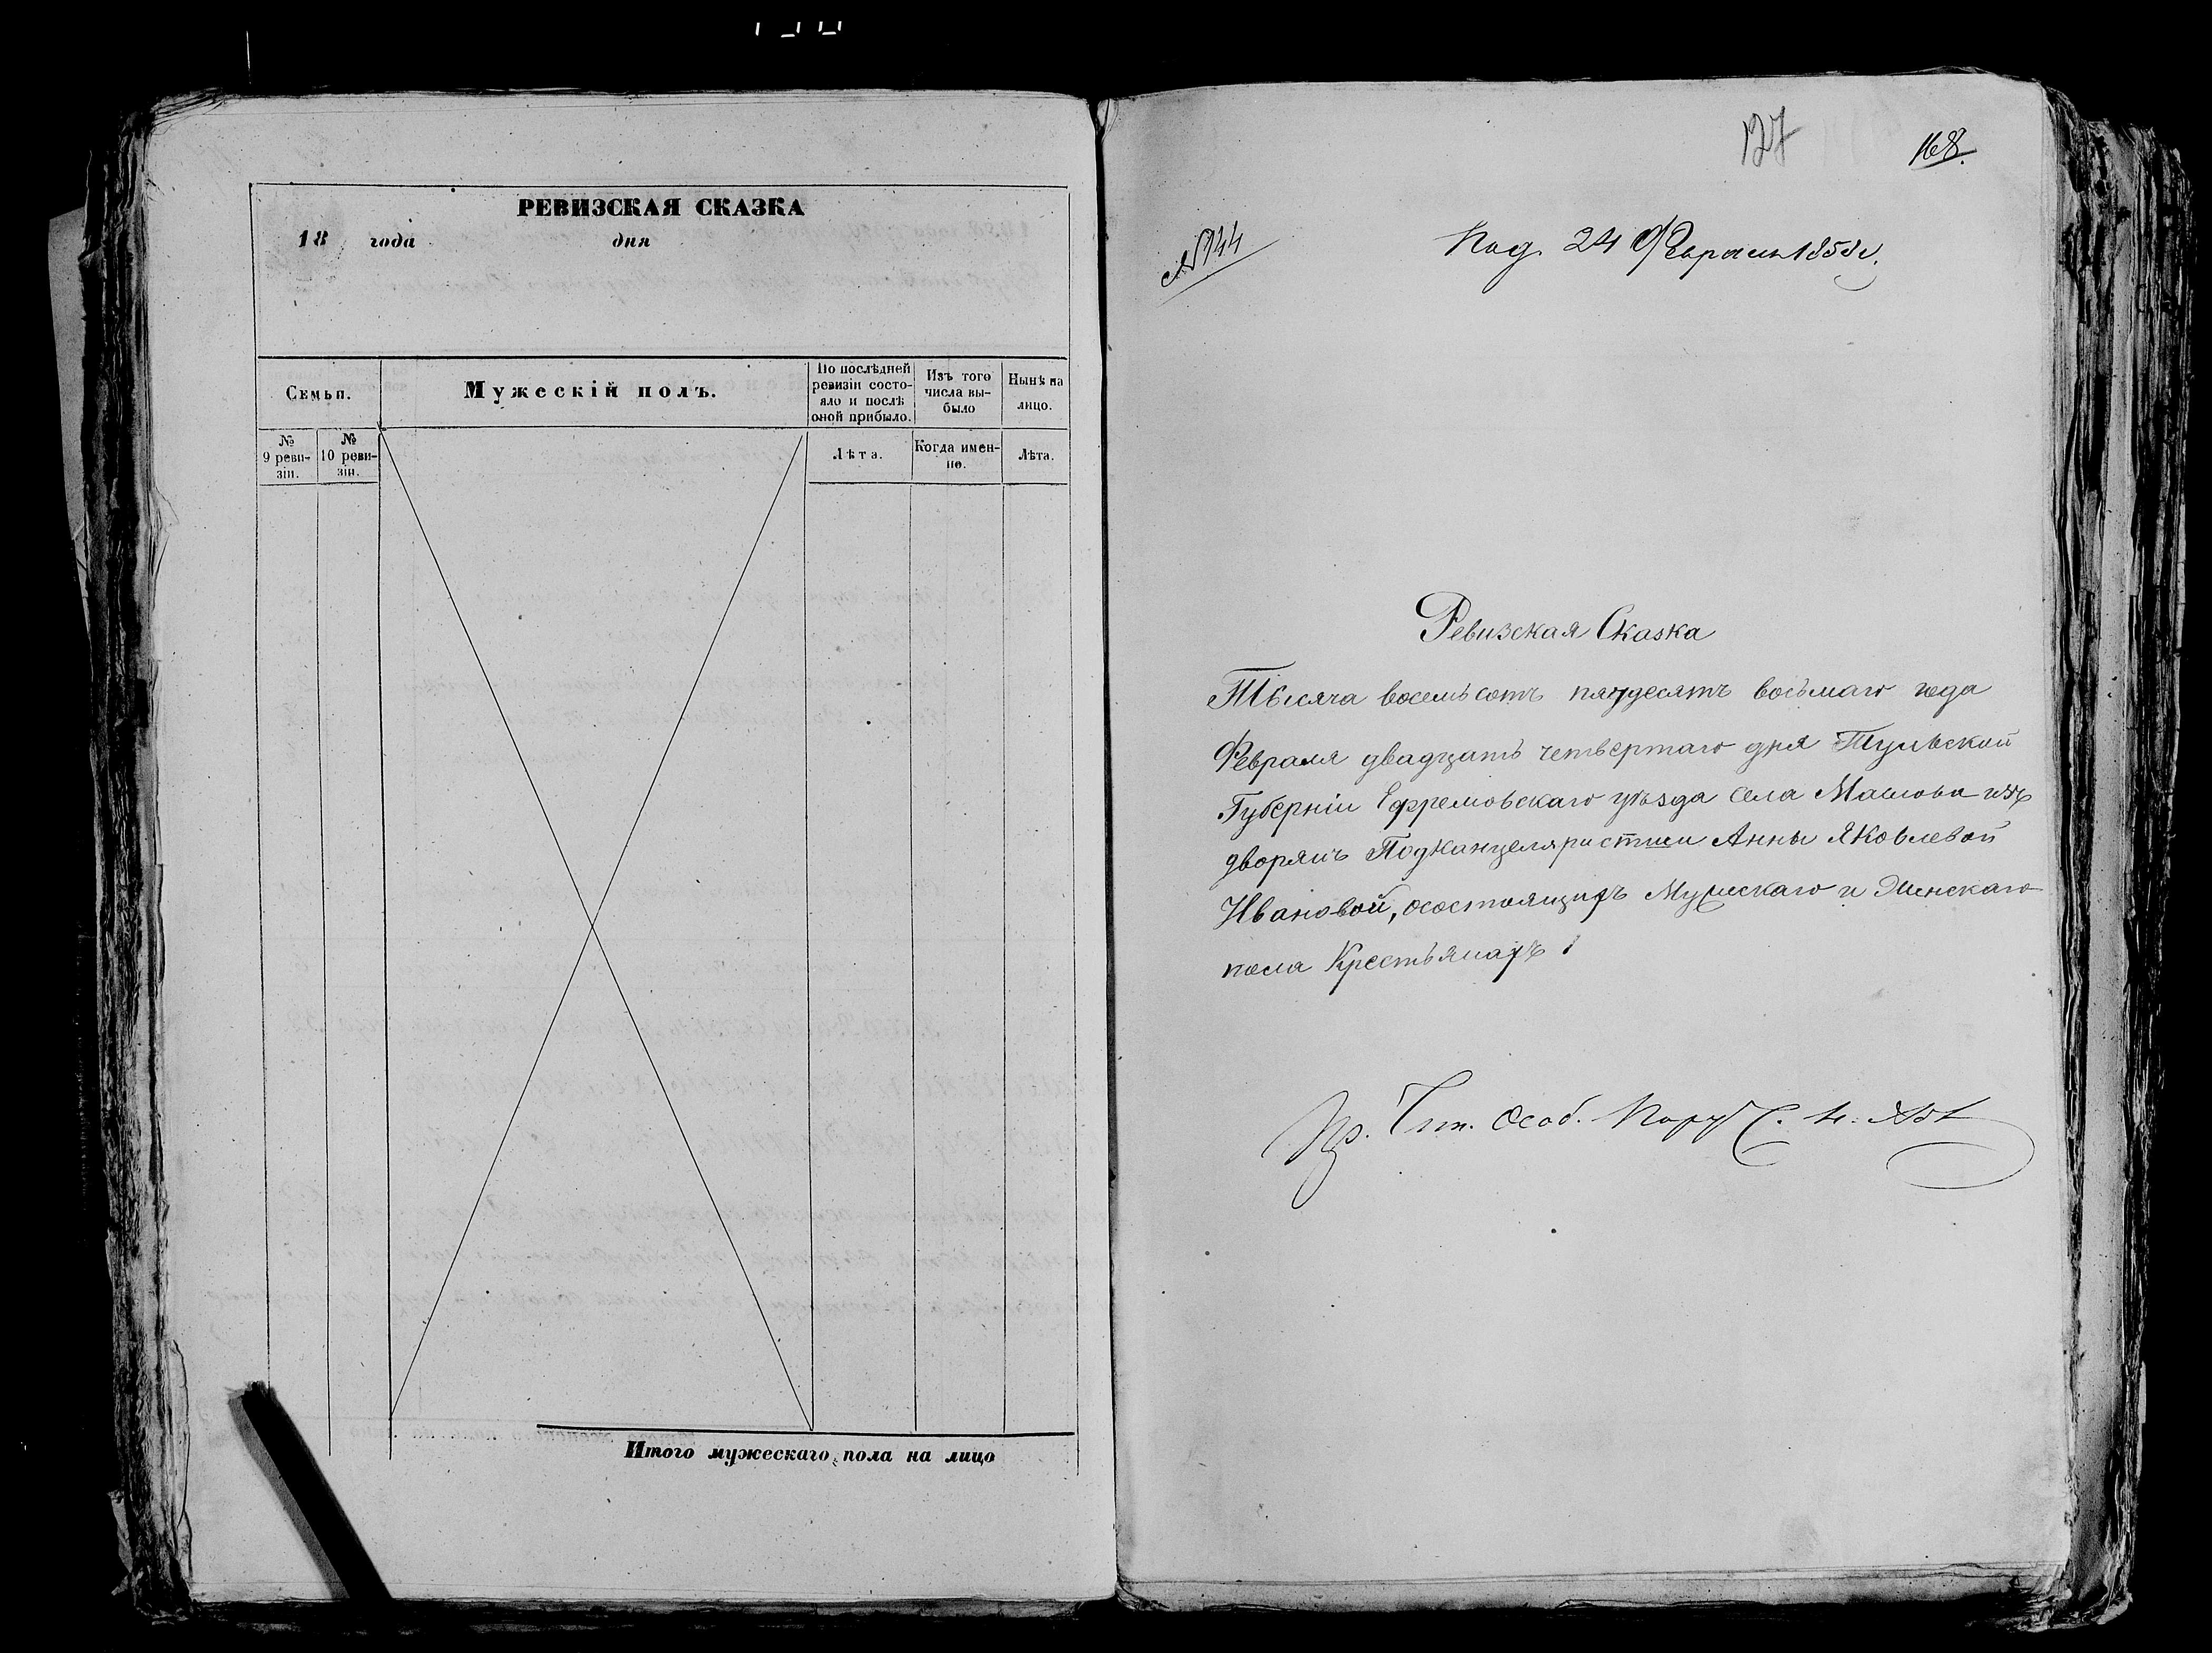 РЕВИЗСКАЯ СКАЗКА
18 года дня
Семьи.
Мужескій полъ.
По послѣдней ревизіи состо-
яло и послѣ
оной прибыло.
Изъ того
числа вы-
было
Нынѣ на
лицо.
№
9 реви-
зіи.
№
10 реви-
зіи.
Лѣта.
Когда имен-
но.
Лѣта.
Итого мужескаго пола на лицо
127
168.
№144
Под. 24 Февраля 1858 г.
Ревизская Сказка
Тысяча восемьсотъ пятдесятъ восьмаго года
Февраля двадцать четвертаго дня Тульской
Губерніи Ефремовскаго уѣзда села Маслова изъ
дворянъ Подканцеляристши Анны Яковлевой
Ивановой, осостоящихъ Мужескаго и Женскаго
пола Крестьянахъ